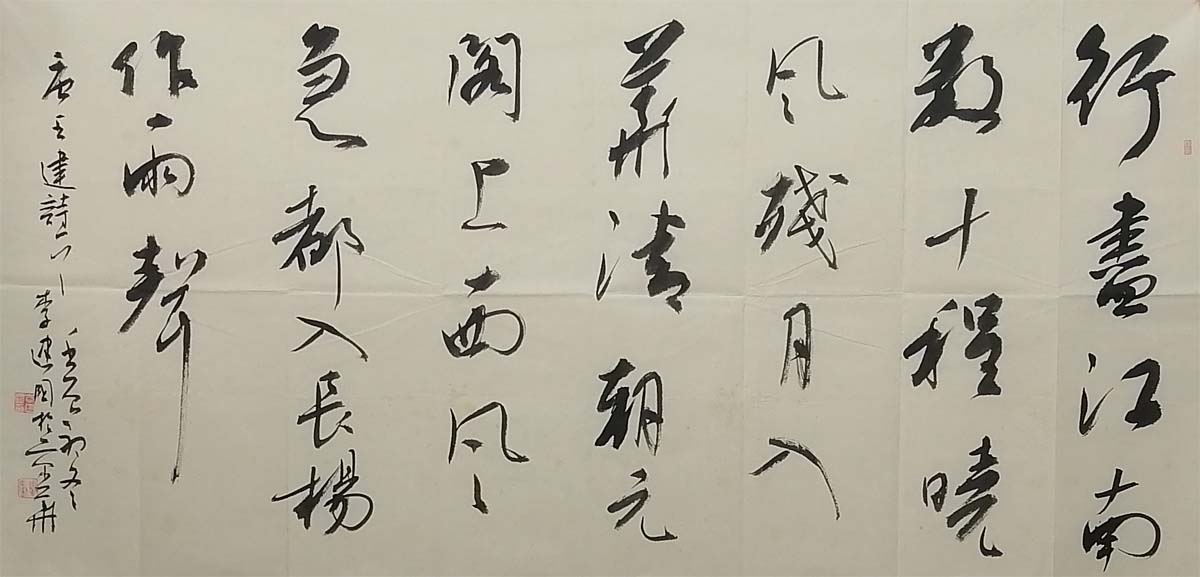 行盡江南
數十程曉
風殘月入
華清朝元
閣上西風
急都入長楊
作雨聲
唐王建詩
初冬
李建國於